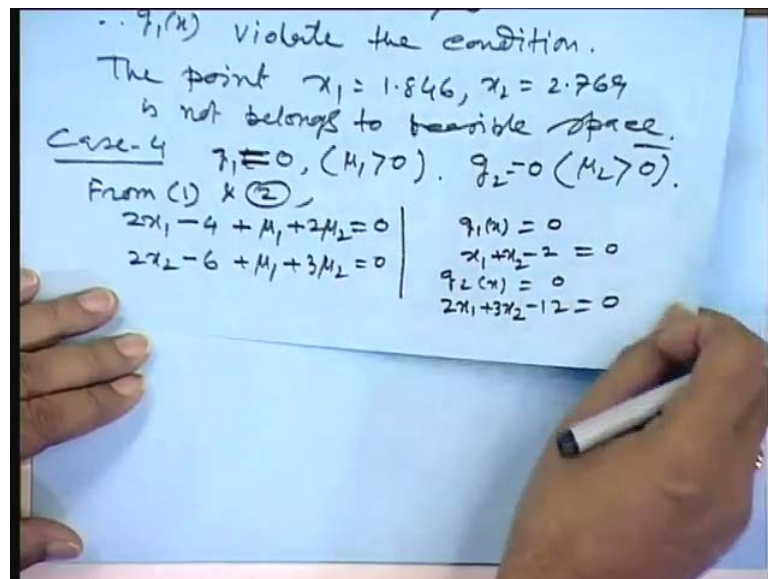 ∴ g₁(x) violate the condition.
The point x₁ = 1.846, x₂ = 2.769
is not belongs to feasible space.
Case-4 g₁ = 0, (μ₁ > 0). g₂ = 0 (μ₂ > 0).
From (1) & (2),
2x₁ - 4 + μ₁ + 2μ₂ = 0
2x₂ - 6 + μ₁ + 3μ₂ = 0
g₁(x) = 0
x₁ + x₂ - 2 = 0
g₂(x) = 0
2x₁ + 3x₂ - 12 = 0